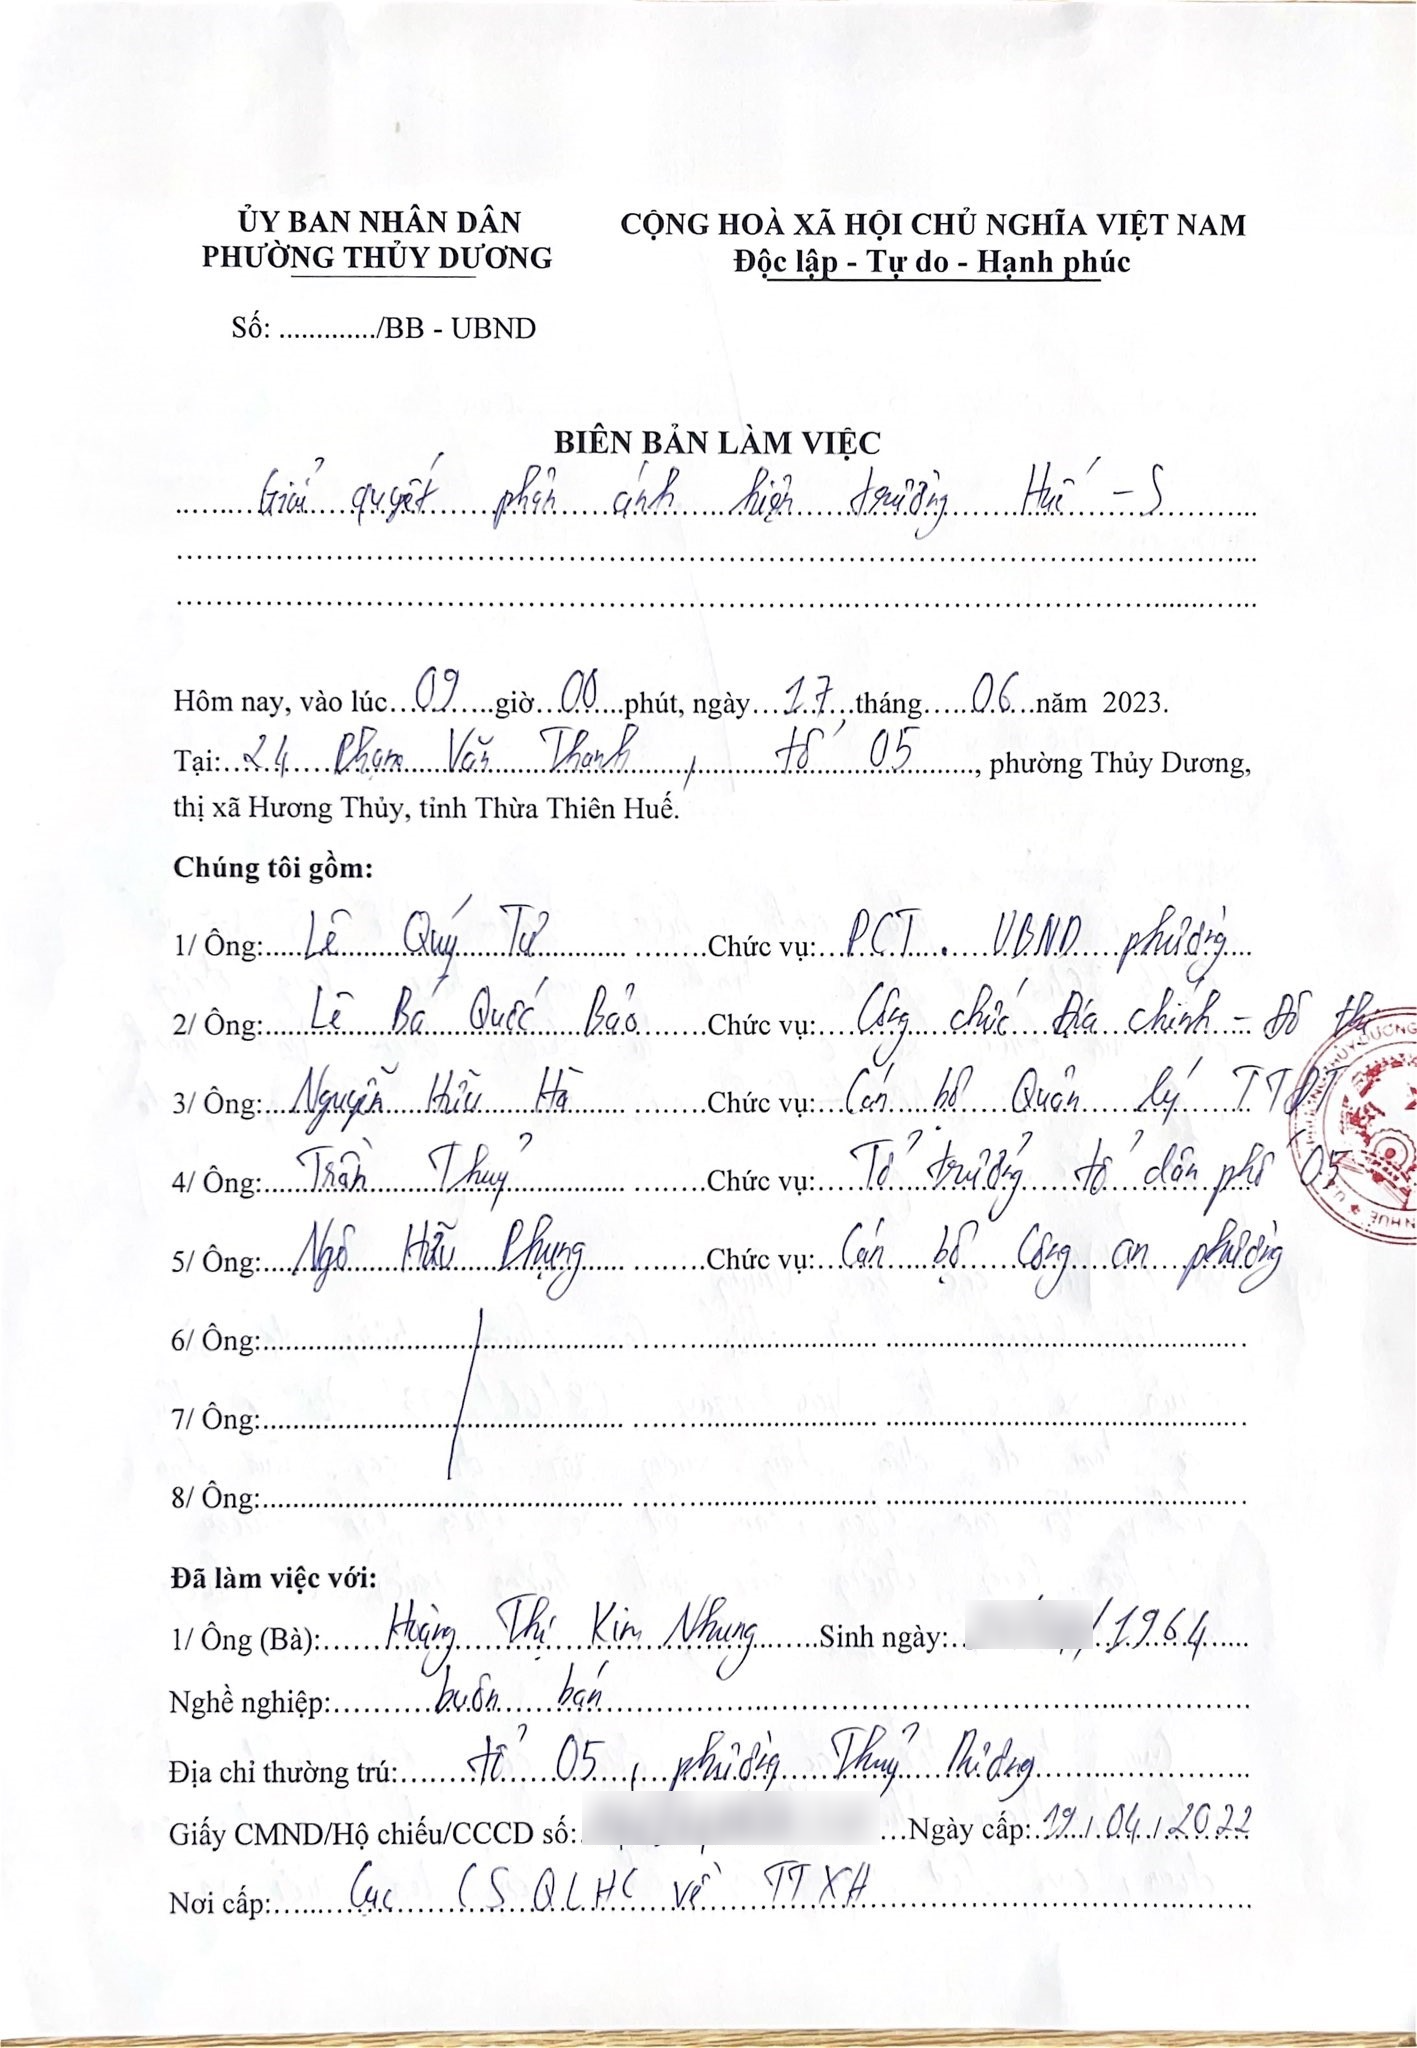 ỦY BAN NHÂN DÂN
PHƯỜNG THỦY DƯƠNG
CỘNG HOÀ XÃ HỘI CHỦ NGHĨA VIỆT NAM
Độc lập - Tự do - Hạnh phúc
Số: ............./BB - UBND
BIÊN BẢN LÀM VIỆC
Giải quyết phản ánh hiện trường Huế - S
Hôm nay, vào lúc 09 giờ 00 phút, ngày 17 tháng 06 năm 2023.
Tại: 24 Phạm Văn Thanh, tổ 05, phường Thủy Dương,
thị xã Hương Thủy, tỉnh Thừa Thiên Huế.
Chúng tôi gồm:
1/ Ông: Lê Quý Tư Chức vụ: PCT. UBND phường
2/ Ông: Lê Bá Quốc Bảo Chức vụ: Công chức Địa chính - Đô thị
3/ Ông: Nguyễn Hữu Hà Chức vụ: Cán bộ Quản lý TTĐT
4/ Ông: Trần Thuỷ Chức vụ: Tổ trưởng tổ dân phố 05
5/ Ông: Ngô Hữu Phụng Chức vụ: Cán bộ Công an phường
6/ Ông:
7/ Ông:
8/ Ông:
Đã làm việc với:
1/ Ông (Bà): Hoàng Thị Kim Nhung Sinh ngày: /1964
Nghề nghiệp: buôn bán
Địa chỉ thường trú: tổ 05, phường Thuỷ Dương
Giấy CMND/Hộ chiếu/CCCD số: Ngày cấp: 19/04/2022
Nơi cấp: Cục CSQLHC về TTXH